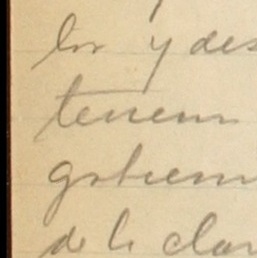 los y des
tenemos
gobierno
de la clas